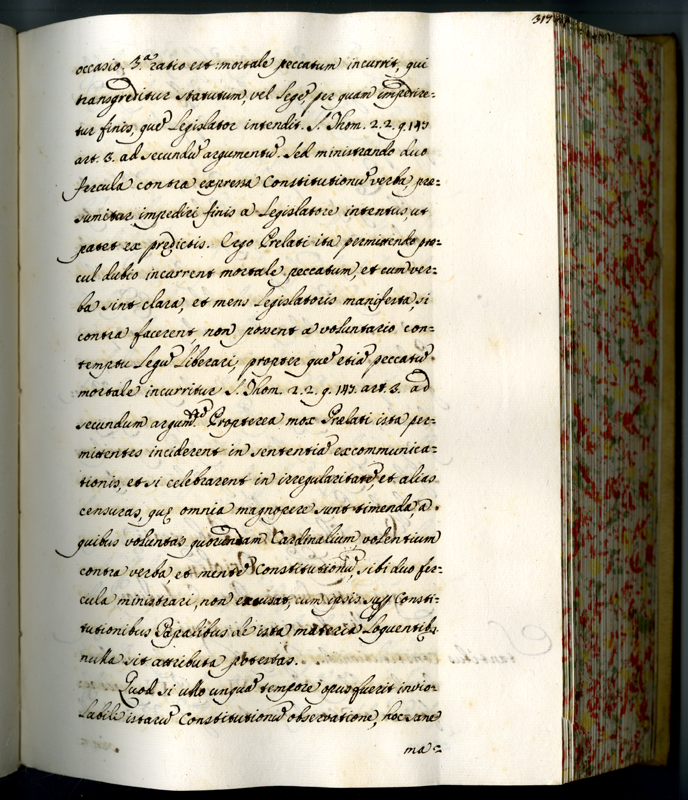 317
occasio. 3.ª ratio est mortale peccatum incurrit, qui
transgreditur statutum, vel legẽ, per quam impedire=
tur finis, quẽ Legislator intendit. S. Thom. 2. 2. q. 147
art. 3. ad secundũ argumentũ. Sed ministrando duo
fercula contra expressa Constitutionũ verba pre=
sumitur impediri finis a Legislatore intentus, ut
patet ex prędictis. Ergo Prelati ita permittendo pro=
cul dubio incurrent mortale peccatum, et cum ver=
ba sint clara, et mens Legislatoris manifesta, si
contra facerent, non possent a voluntario con=
temptu Legũ liberari, propter quẽ etiã peccatũ
mortale incurritur S. Thom. 2. 2. q. 147. art. 3. ad
secundum argum.tũ Propterea mox Prælati ista per=
mittentes inciderent in sententiã excommunica=
tionis, et si celebrarent in irregularitatẽ, et alias
censuras, quę omnia magnopere sunt timenda, a
quibus voluntas quorundam Cardinalium volentium
contra verba, et mentẽ Constitutionũ, sibi duo fer=
cula ministrari, non excusat, cum ipsis sup. Consti=
tutionibus Papalibus de ista materia loquentibs.
nulla sit attributa potestas.
Quod si ullo unquã tempore opus fuerit invio=
labili istarũ Constitutionũ observatione, hoc sane
ma=